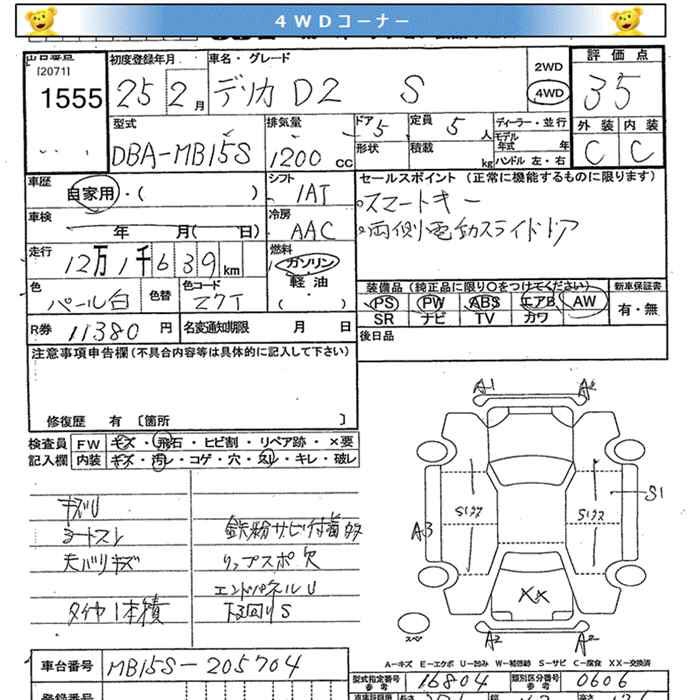 4WDコーナー
出品番号
[2071]
1555
初度登録年月
25 2月
車名・グレード
デリカD2 S
2WD
4WD
評価点
35
型式
DBA-MB15S
排気量
1200 cc
ドア 5
形状
定員 5 人
積載 kg
ディーラー・並行
モデル年式 年
ハンドル 左・右
外装 内装
C C
車歴
自家用・( )
シフト
IAT
セールスポイント (正常に機能するものに限ります)
・スマートキー
・両側電動スライドドア
車検
年 月( 日)
冷房
AAC
走行
12万1千639km
燃料
ガソリン
軽油
( )
色
パール白
色替
色コード
Z7T
装備品 (純正品に限り○をつけてください)
PS PW ABS エアB AW
SR ナビ TV カワ
新車保証書
有・無
R券 11380円
名変通知期限 月 日
後日品
注意事項申告欄 (不具合内容等は具体的に記入して下さい)
修復歴 有 [箇所 ]
検査員 FW キズ・飛石・ヒビ割・リペア跡・×要
記入欄 内装 キズ・汚レ・コゲ・穴・スレ・キレ・破レ
キズU
シートスレ
天バリキズ
タイヤ1本積
鉄粉サビ付着多々
リップスポ欠
エンドパネルU
下回りS
A1 A2
S1
A3
XX
スペア
A2 A2
A-キズ E-エクボ U-凹み W-補修跡 S-サビ C-腐食 XX-交換済
車台番号 MB15S-205704
型式指定番号 参考 16804
類別区分番号 参考 0606
登録番号